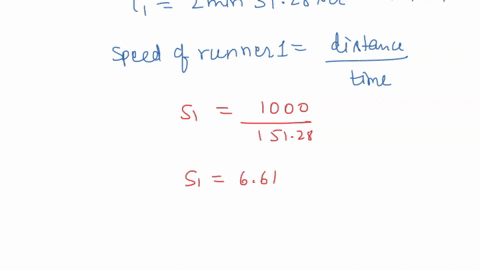 T₁ = 2min 51.28
Speed of runner 1 = distance / time
S₁ = 1000 / 151.28
S₁ = 6.61